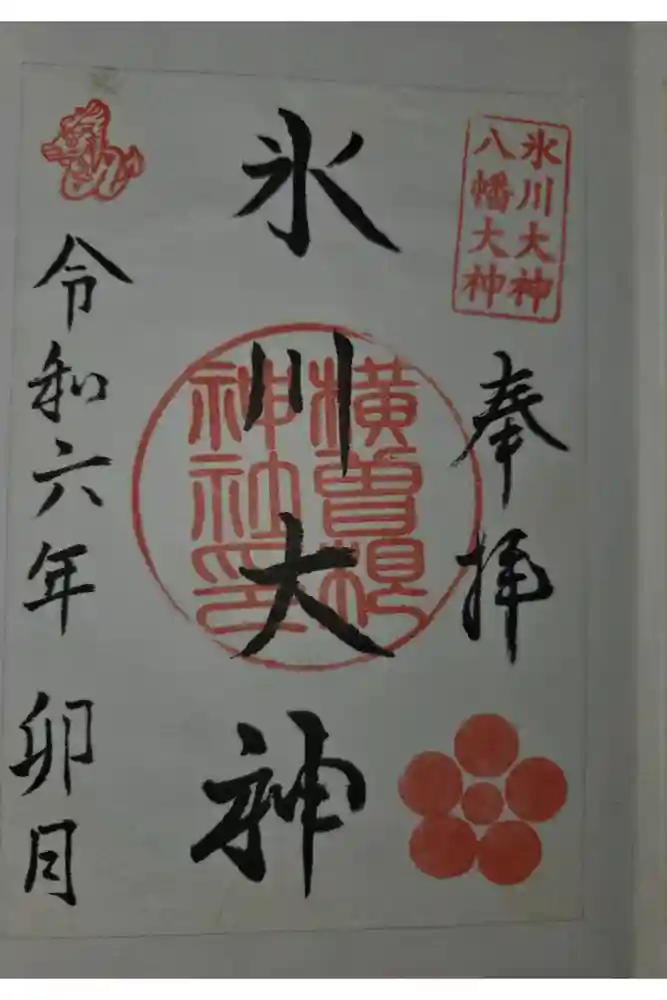 氷川大神
八幡大神
奉拝
氷川大神
横曽根
神社印
令和六年 卯月